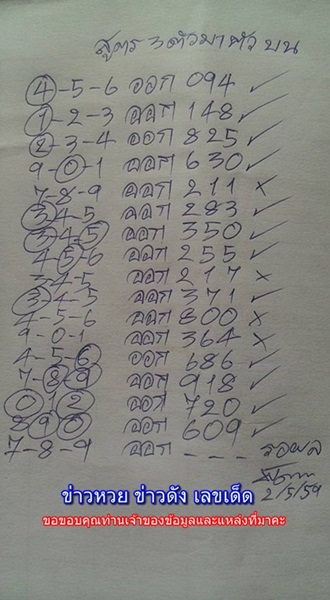 สูตร 3ตัวมา 1ตัว บน
4-5-6 ออก 094 ✓
1-2-3 ออก 148 ✓
2-3-4 ออก 825 ✓
9-0-1 ออก 630 ✓
7-8-9 ออก 211 ×
3-4-5 ออก 283 ✓
3-4-5 ออก 350 ✓
4-5-6 ออก 255 ✓
3-4-5 ออก 217 ×
3-4-5 ออก 371 ✓
4-5-6 ออก 800 ×
9-0-1 ออก 364 ×
4-5-6 ออก 686 ✓
7-8-9 ออก 918 ✓
0-1-2 ออก 720 ✓
8-9-0 ออก 609 ✓
7-8-9 ออก - - - รอผล
2/5/59
ข่าวหวย ข่าวดัง เลขเด็ด
ขอขอบคุณท่านเจ้าของข้อมูลและแหล่งที่มาคะ